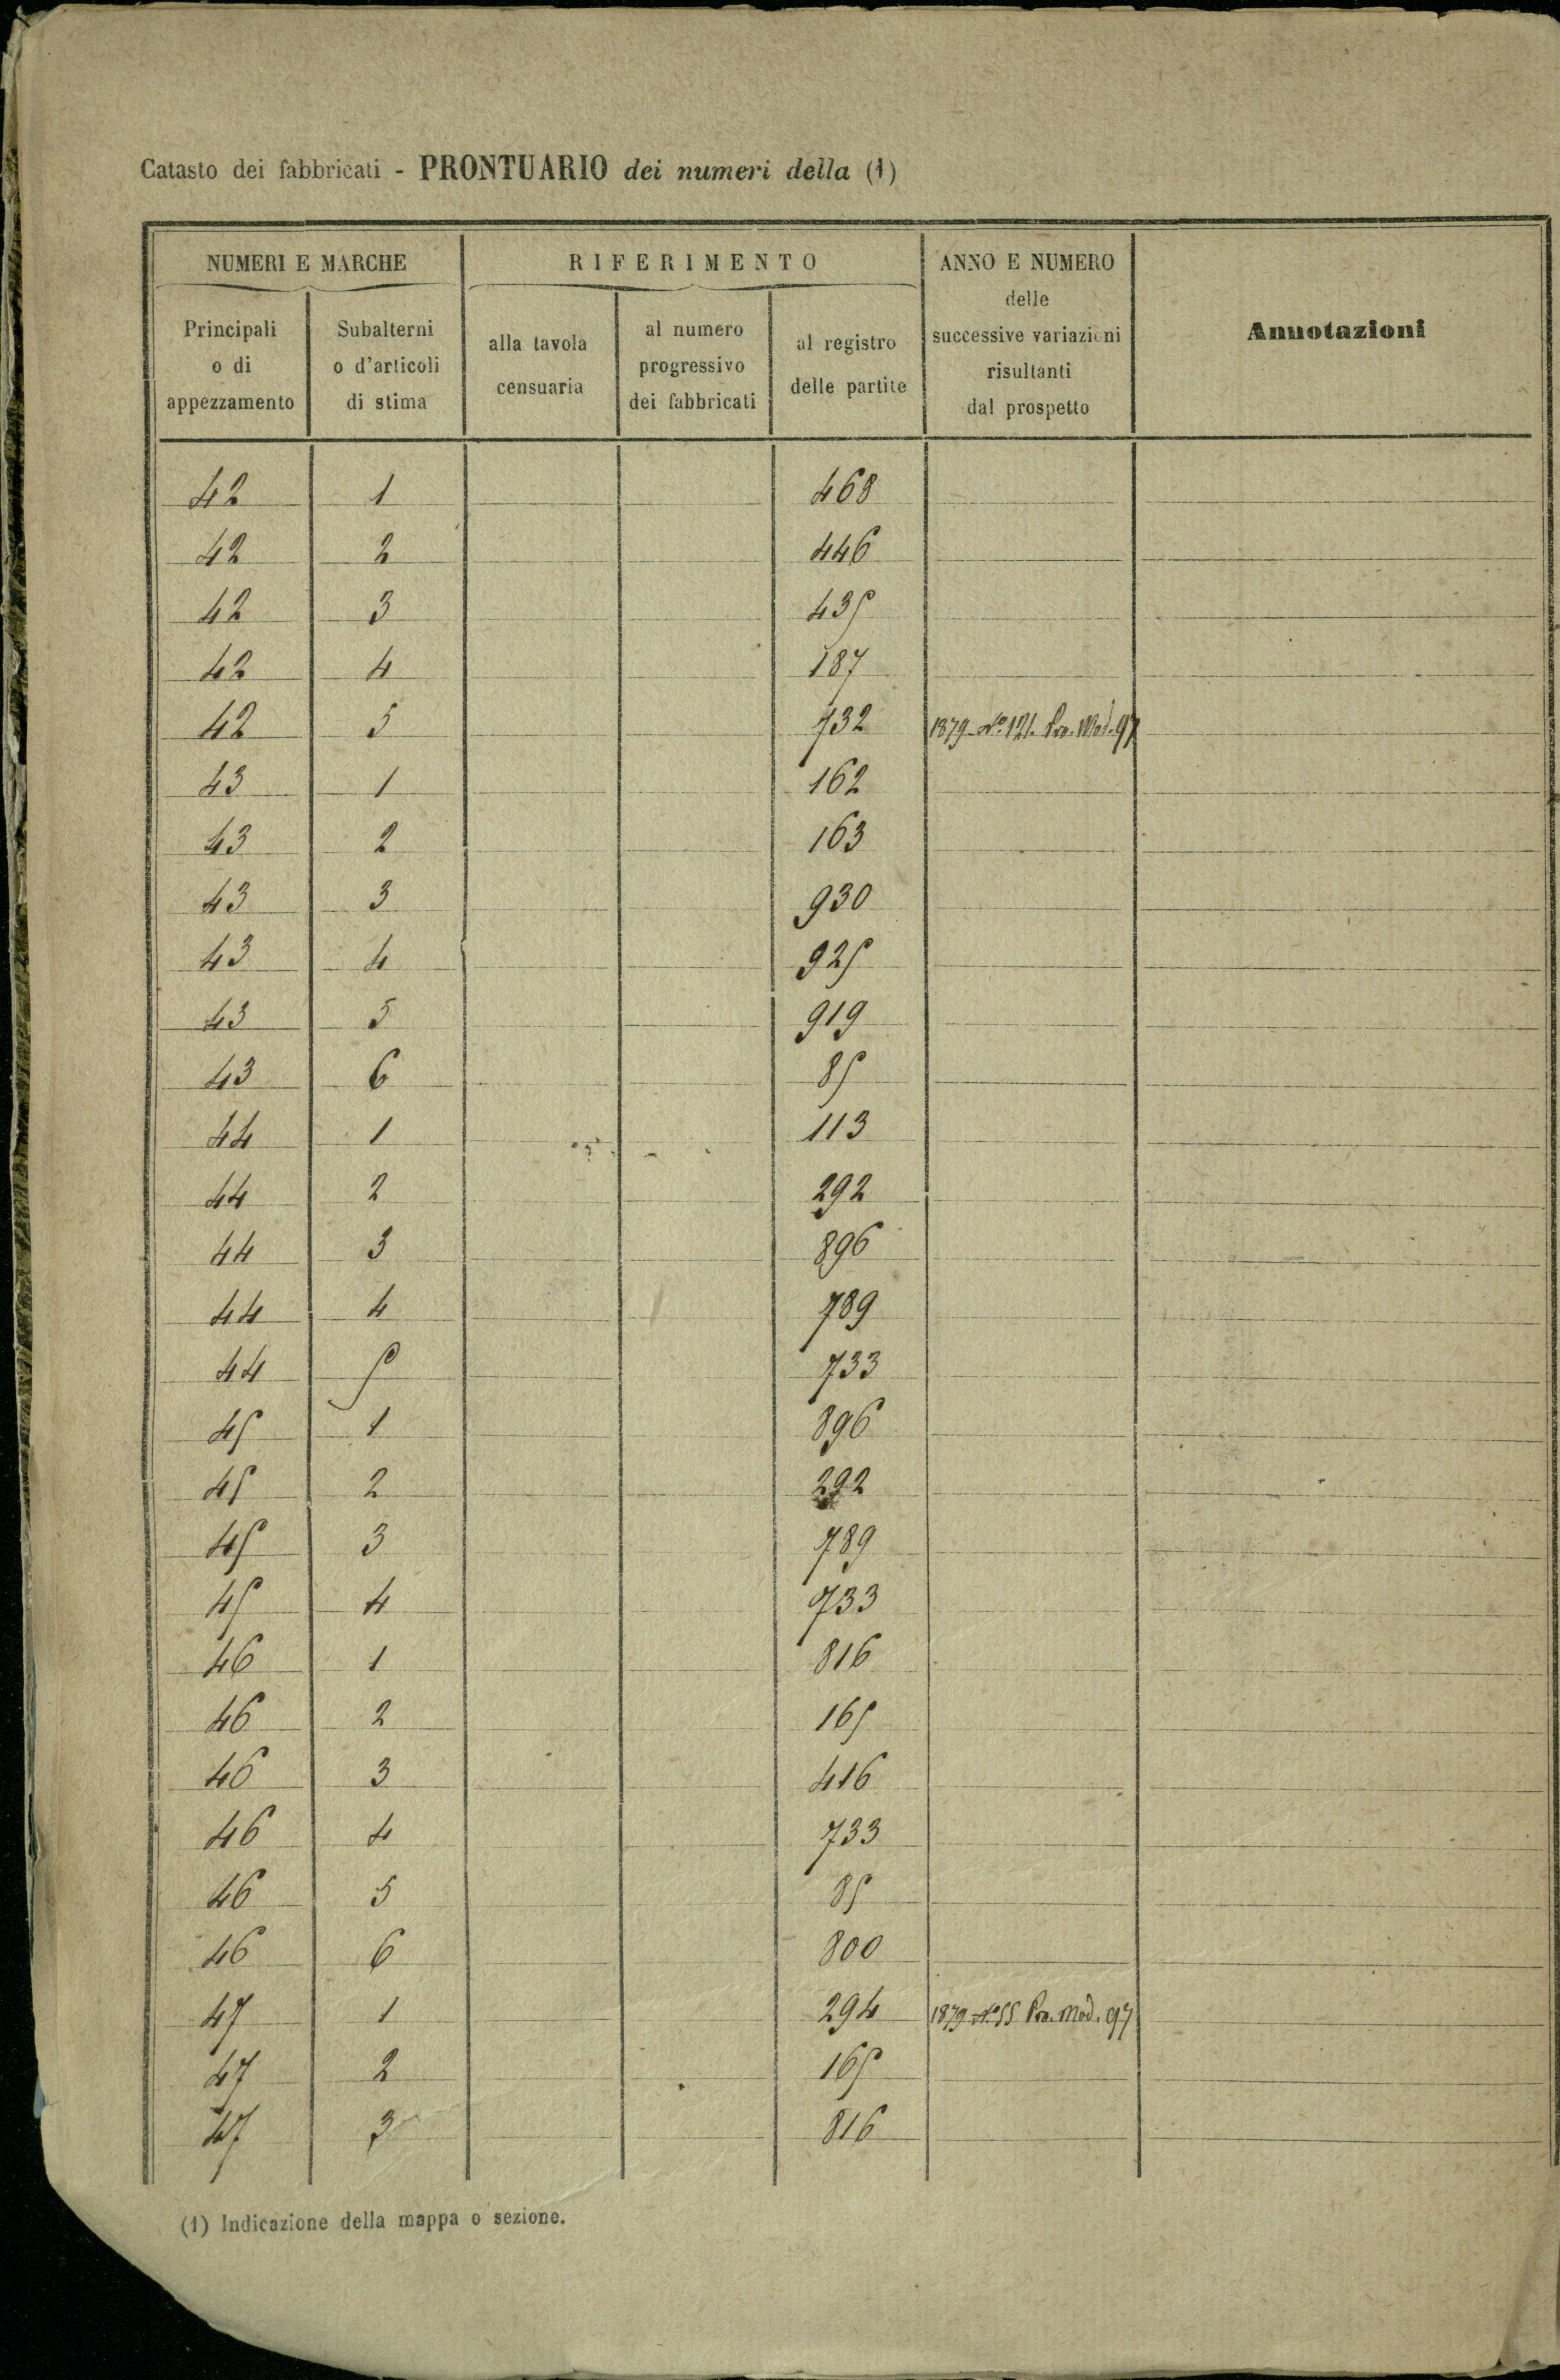 Catasto dei fabbricati - PRONTUARIO dei numeri della (1)
NUMERI E MARCHE RIFERIMENTO ANNO E NUMERO delle successive variazioni risultanti dal prospetto Annotazioni
Principali o di appezzamento Subalterni o d'articoli di stima alla tavola censuaria al numero progressivo dei fabbricati al registro delle partite
42 1 468
42 2 446
42 3 435
42 4 187
42 5 732 1879 N.º 121. Pro. Mod. 97
43 1 162
43 2 163
43 3 930
43 4 925
43 5 919
43 6 85
44 1 113
44 2 292
44 3 896
44 4 789
44 5 733
45 1 896
45 2 292
45 3 789
45 4 733
46 1 816
46 2 165
46 3 416
46 4 733
46 5 85
46 6 800
47 1 294 1879 N.º 55 Pro. Mod. 97
47 2 165
47 3 816
(1) Indicazione della mappa o sezione.